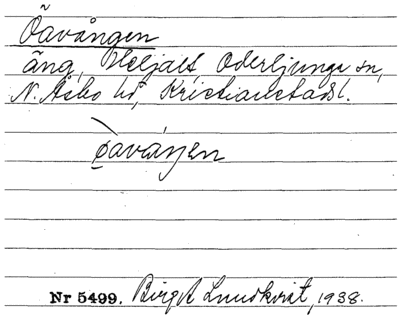 Öavången
äng, Heljalt, Oderljunga sn,
N. Åsbo hd, Kristianstads l.
øavåŋen
Nr 5499. Birgit Lundkvist, 1938.